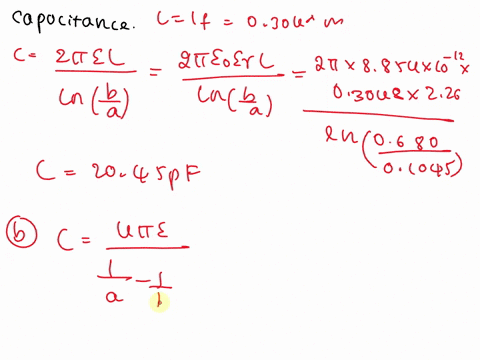 Capacitance. L = 1f = 0.3048 m
C = 2πεL / ln(b/a) = 2πε0εrL / ln(b/a) = 2π × 8.854 × 10^-12 × 0.3048 × 2.26 / ln(0.680 / 0.1045)
C = 20.45pF
(b) C = 4πε / 1/a - 1/b